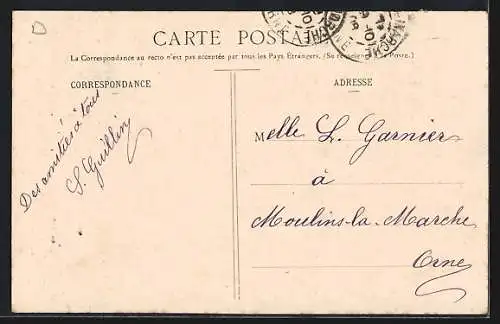 CARTE POSTALE
La Correspondance au recto n'est pas acceptée par tous les Pays Etrangers. (Se renseigner à la Poste.)
CORRESPONDANCE
ADRESSE
Des amitiés à tous
S. Guillin
Melle L. Garnier
à
Moulins-la-Marche
Orne